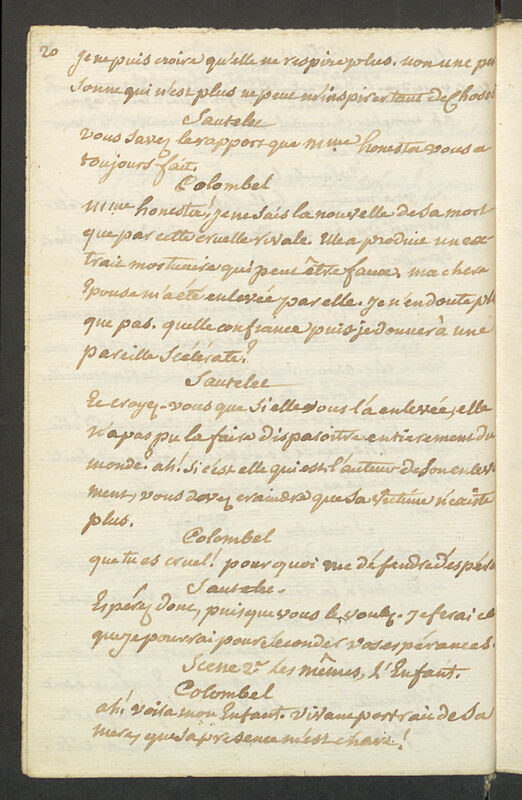 20
je ne puis croire qu'elle ne respire plus. non une per
sonne qui n'est plus ne peut m'inspirer tant de choses
Sautelec
vous savez le rapport que mme honesta vous a
toujours fait.
Colombel
mme honesta! je ne sais la nouvelle de sa mort
que par cette cruelle rivale. Elle a produit un ex
trait mortuaire qui peut être faux, ma chere
Epouse m'a été enlevée par elle. je n'en doute pres
que pas. quelle confiance puis je donner à une
pareille Scélérate?
Sautelec
Et croyez-vous que si elle vous l'a enlevée, elle
n'a pas pu la faire disparoître entierement du
monde. ah! si c'est elle qui est l'auteur de son enleve
ment, vous devez craindre que sa victime n'existe
plus.
Colombel
que tu es cruel! pourquoi me défendre d'espérer
Sautelec.
Espérez donc, puisque vous le voulez. je ferai ce
que je pourrai pour seconder vos espérances.
Scene 2e. les mêmes, l'Enfant.
Colombel
ah! voila mon Enfant. vivant portrait de sa
mere, que sa presence m'est chere!